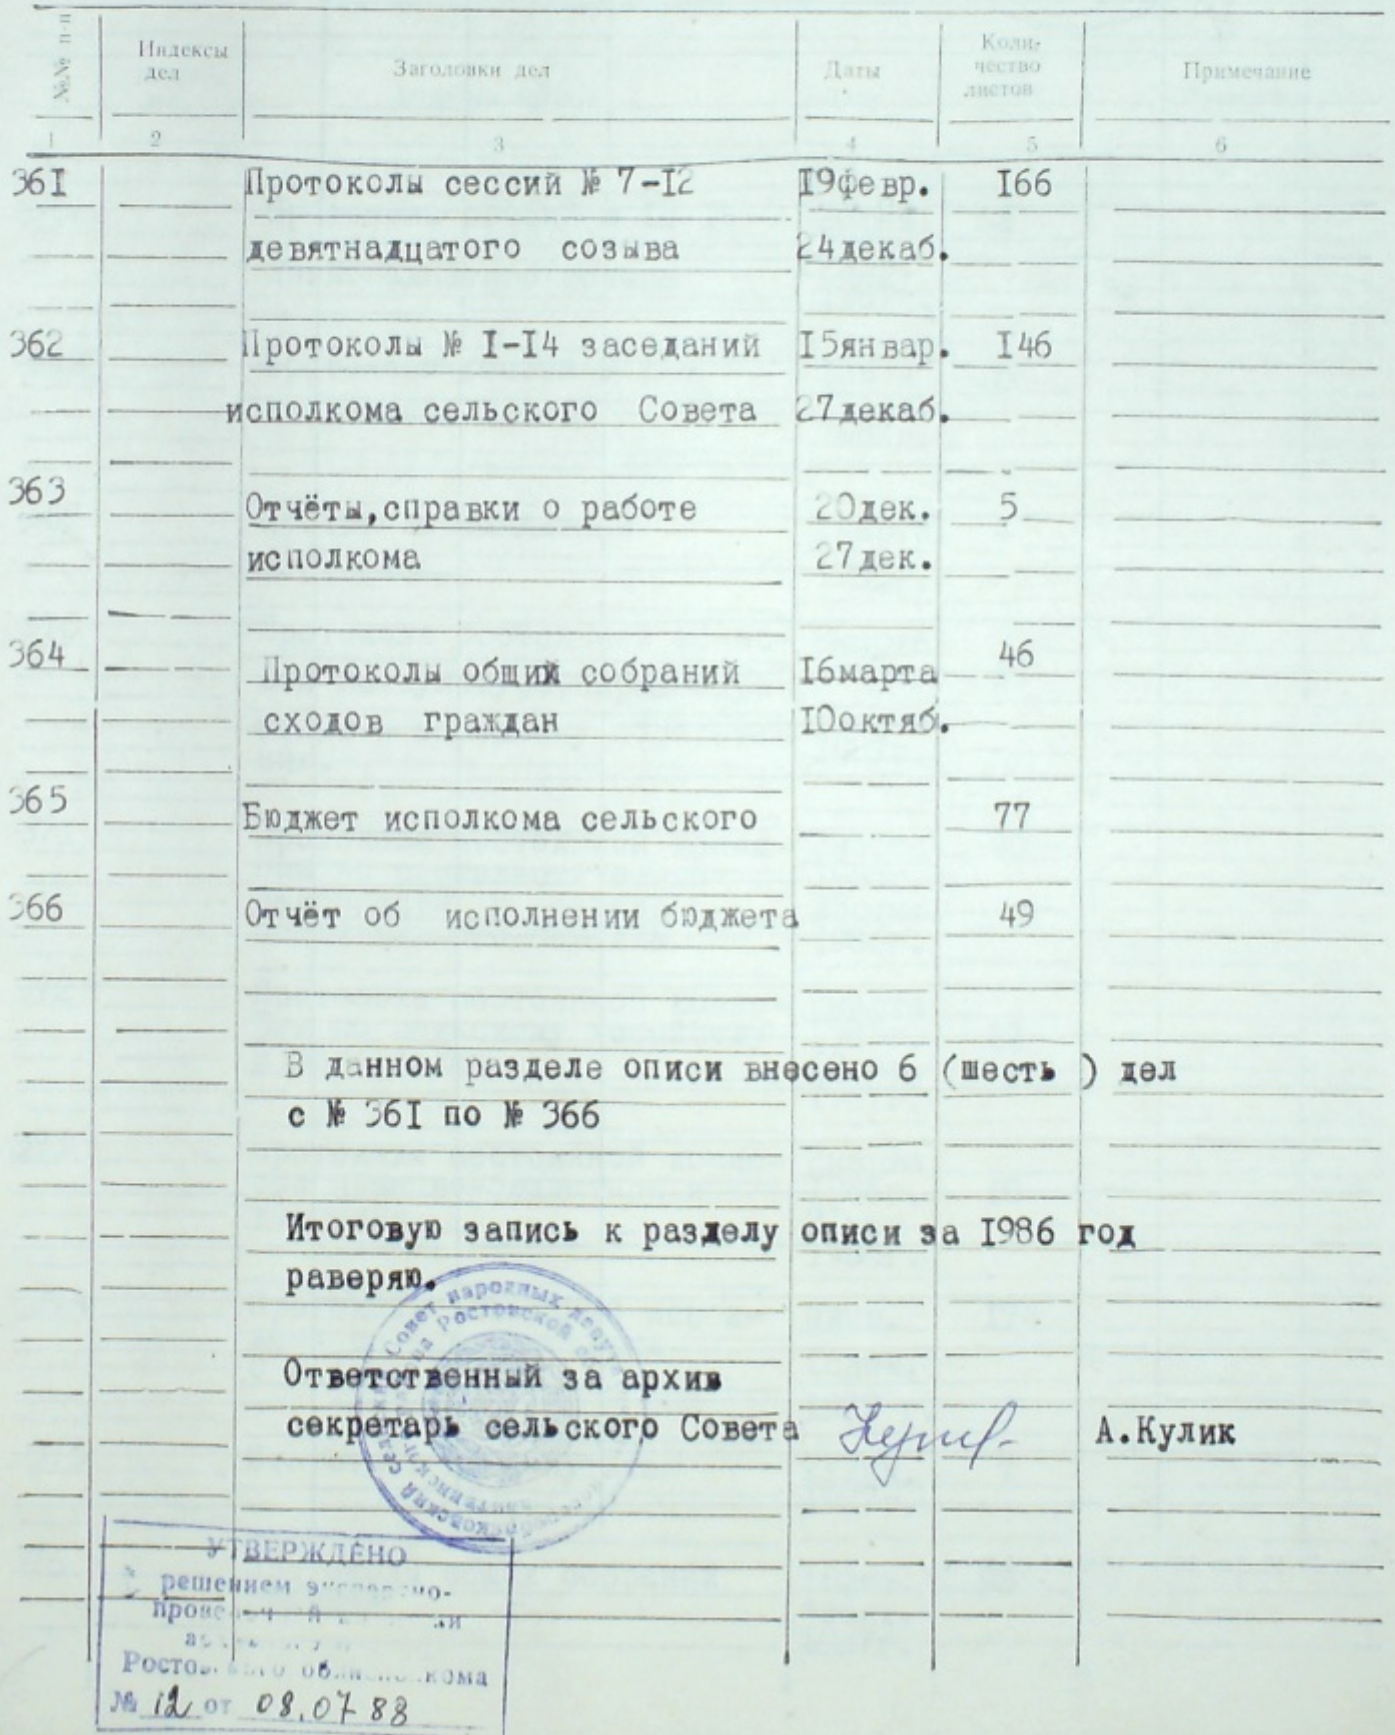 №№ п-п Индексы дел Заголовки дел Даты Коли- чество листов Примечание
1 2 3 4 5 6
361 Протоколы сессий № 7-12 19февр. 166
девятнадцатого созыва 24декаб.
362 Протоколы № 1-14 заседаний 15январ. 146
исполкома сельского Совета 27декаб.
363 Отчёты,справки о работе 20дек. 5
исполкома 27дек.
364 Протоколы общих собраний 16марта 46
сходов граждан 10октяб.
365 Бюджет исполкома сельского 77
366 Отчёт об исполнении бюджета 49
В данном разделе описи внесено 6 (шесть ) дел
с № 361 по № 366
Итоговую запись к разделу описи за 1986 год
раверяю.
Совет народных
Ростовской
Ответственный за архив
секретарь сельского Совета А.Кулик
УТВЕРЖДЕНО
решением
Ростовского облисполкома
№ 12 от 08.07 88